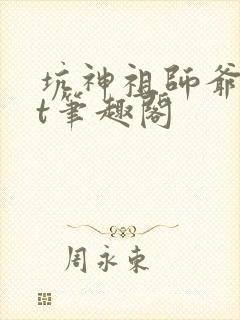 坑神祖師爺
t筆趣閣
周永東